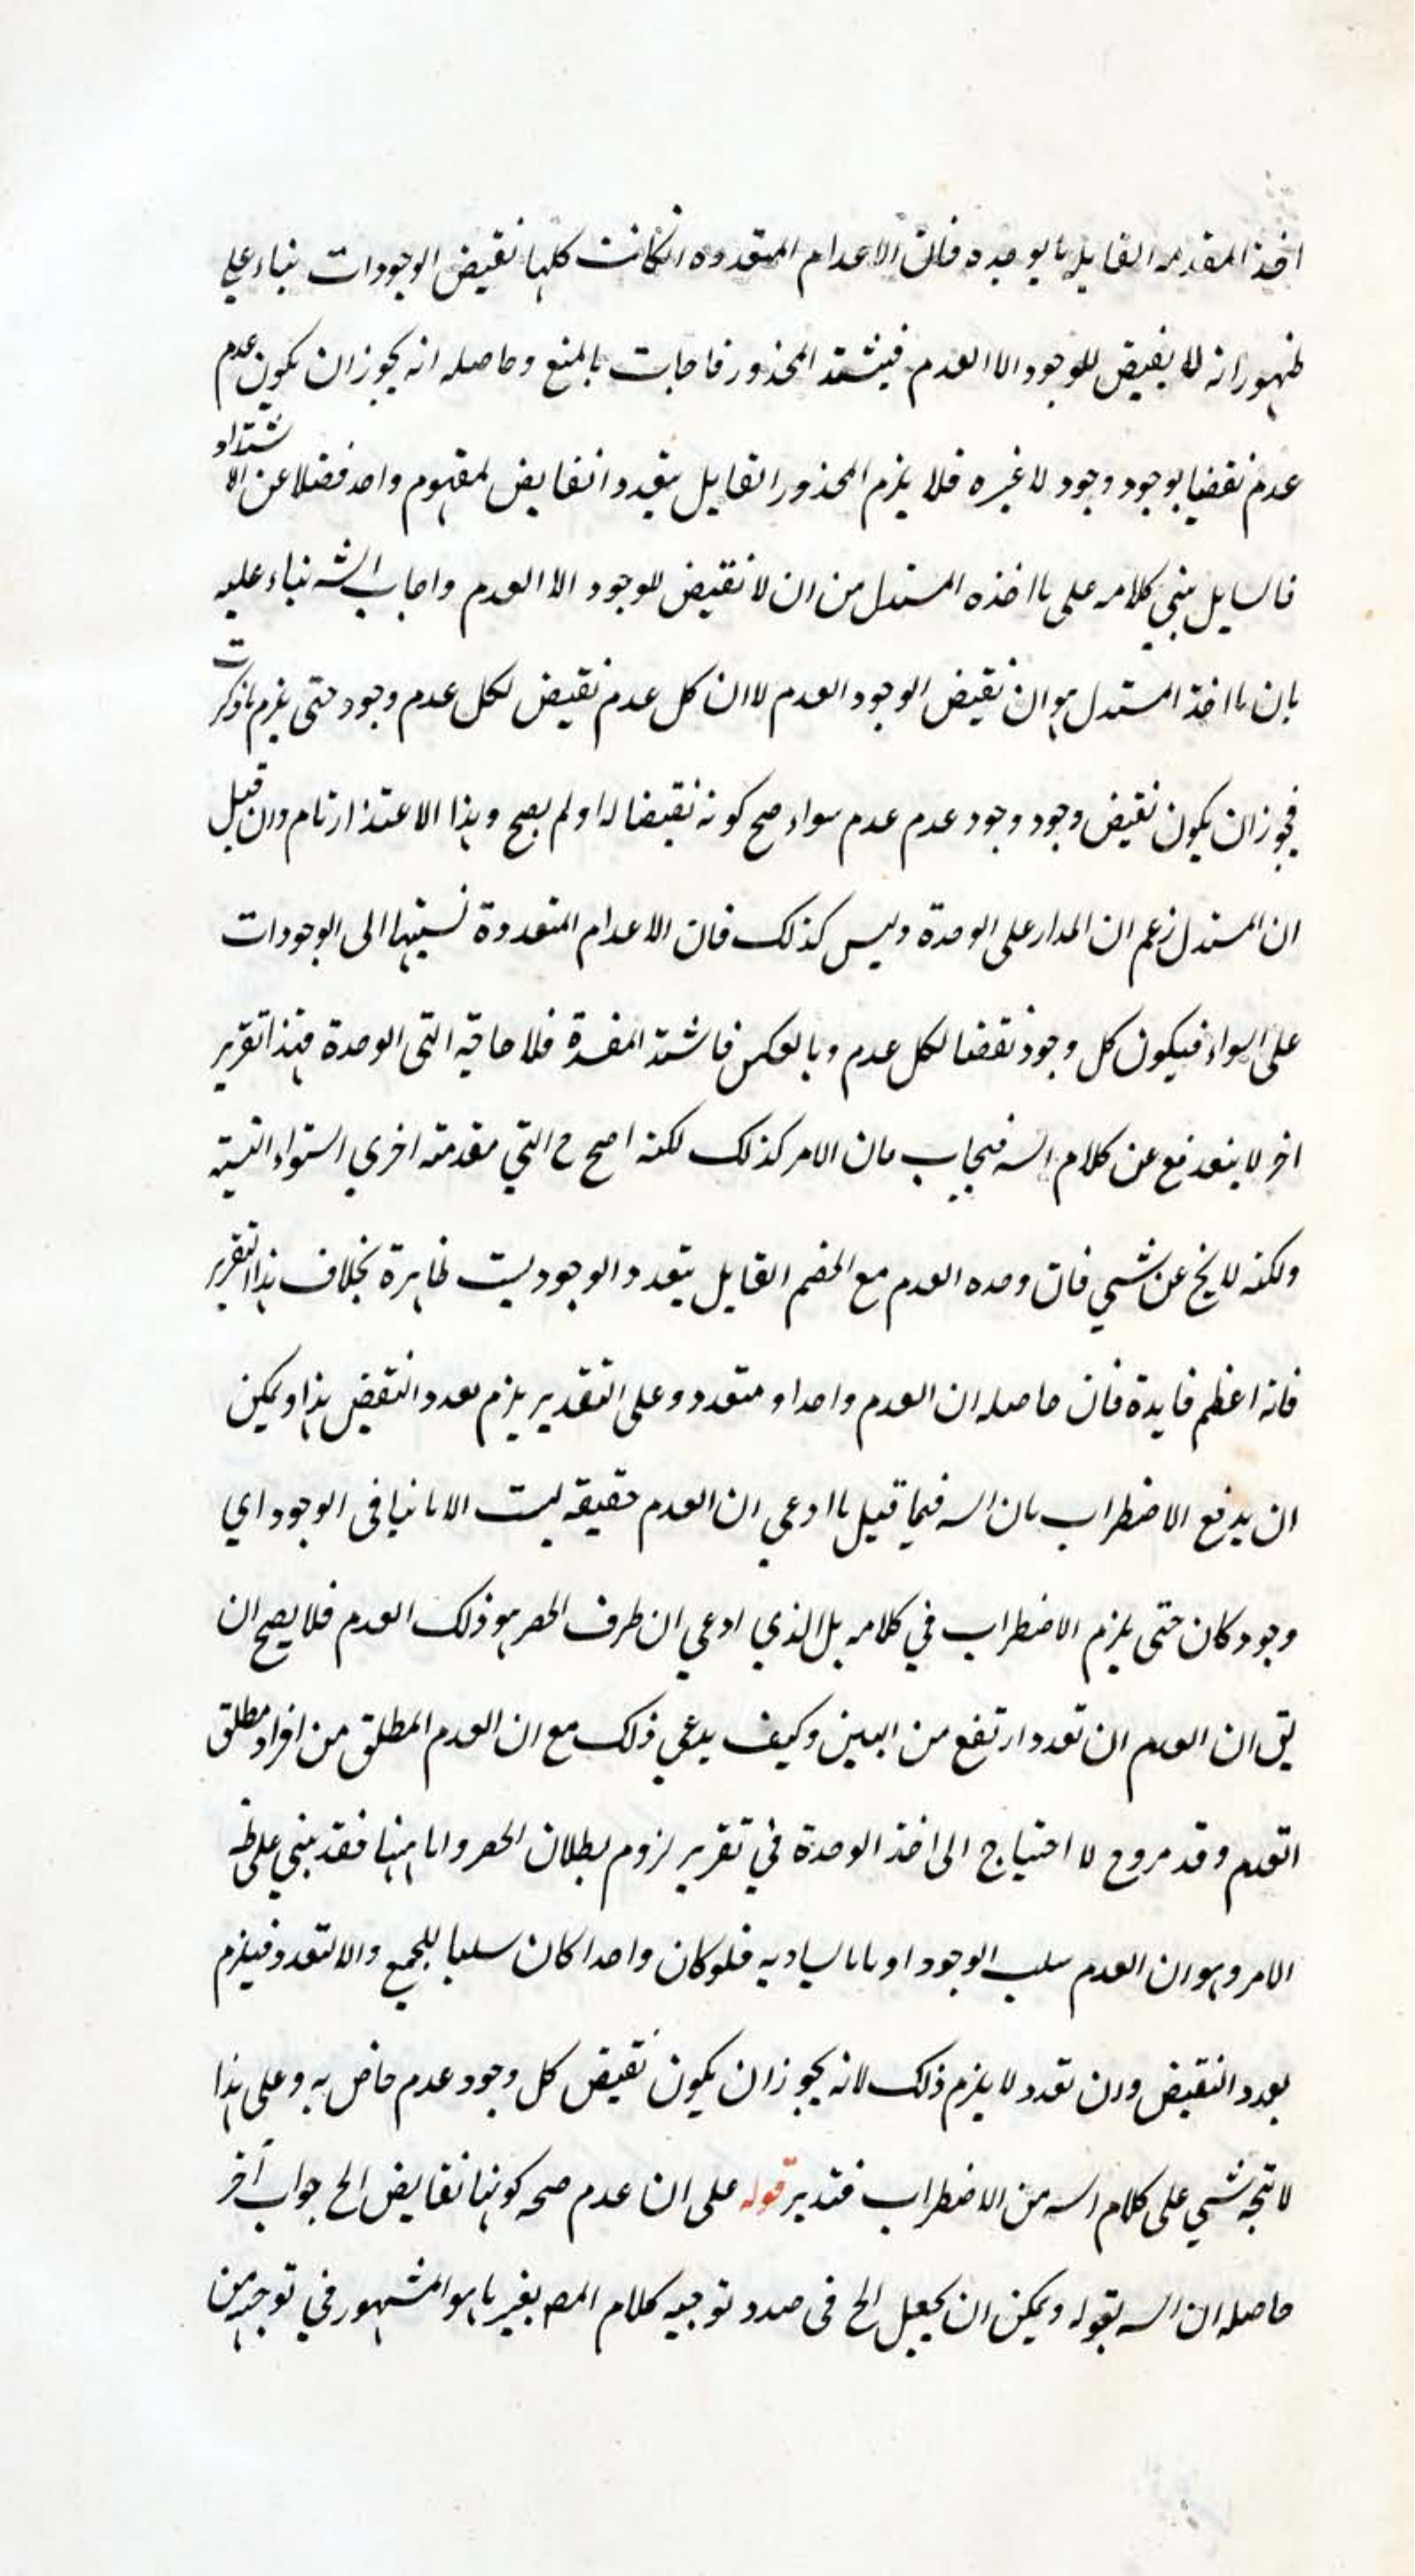 اخذ المقدمه القايله بالوحده فان الاعدام المتعدده انكانت كلها نقيض الوجودات بناء علي
ظهور انه لا نقيض للوجود الا العدم فيشتد المحذور فاجاب بالمنع وحاصله انه يجوز ان يكون عدم
عدم نقيضا لوجود وجود لا غيره فلا يلزم المحذور القايل بتعدد انقايض لمفهوم واحد فضلا عن الا شتداد
فالسايل بني كلامه على ما اخذه المستدل من ان لا نقيض للوجود الا العدم واجاب الشه بناء عليه
بان ما اخذ المستدل هو ان نقيض الوجود العدم لا ان كل عدم نقيض لكل عدم وجود حتى يلزم ما ذكرت
فيجوز ان يكون نقيض وجود وجود عدم عدم سواء صح كونه نقيضا له او لم يصح وهذا الاعتذار تام وان قيل
ان المستدل زعم ان المدار على الوحدة وليس كذلك فان الاعدام المتعددة نسبتها الى الوجودات
على السواء فيكون كل وجود نقضا لكل عدم وبالعكس فاشتد المفسدة فلا حاجة الى الوحدة فهذا تقرير
اخر لا يندفع عن كلام الشه فيجاب بان الامر كذلك لكنه اصح ح التي مقدمته اخري استواء النسبته
ولكنه لا يخ عن شي فان وحده العدم مع الخصم القايل بتعدد الوجود ليست ظاهرة بخلاف هذا التقرير
فانه اعظم فايدة فان حاصله ان العدم واحد او متعدد وعلى التقدير يلزم تعدد النقيض هذا ويمكن
ان يدفع الاضطراب بان الشه فيما قيل ما ادعي ان العدم حقيقه ليست الا ما ينافى الوجود اي
وجود كان حتى يلزم الاضطراب في كلامه بل الذي ادعي ان طرف الحصر هو ذلك العدم فلا يصح ان
يق ان العدم ان تعدد ارتفع من البين وكيف يدعي ذلك مع ان العدم المطلق من افراد مطلق
العدم وقد مر وح لا احتياج الى اخذ الوحدة في تقرير لزوم بطلان الحصر واما ههنا فقد بني على ظ
الامر وهو ان العدم سلب الوجود او ما يساويه فلو كان واحدا كان سلبا للجميع والا لتعدد فيلزم
تعدد النقيض وان تعدد لا يلزم ذلك لانه يجوز ان يكون نقيض كل وجود عدم خاص به وعلى هذا
لا يتجه شي على كلام الشه من الاضطراب فتدبر قوله على ان عدم صحه كونها نقايض الخ جواب آخر
حاصله ان الشه بقوله ويمكن ان يجعل الخ فى صدد توجيه كلام المصه بغير ما هو المشهور في توجيهه من